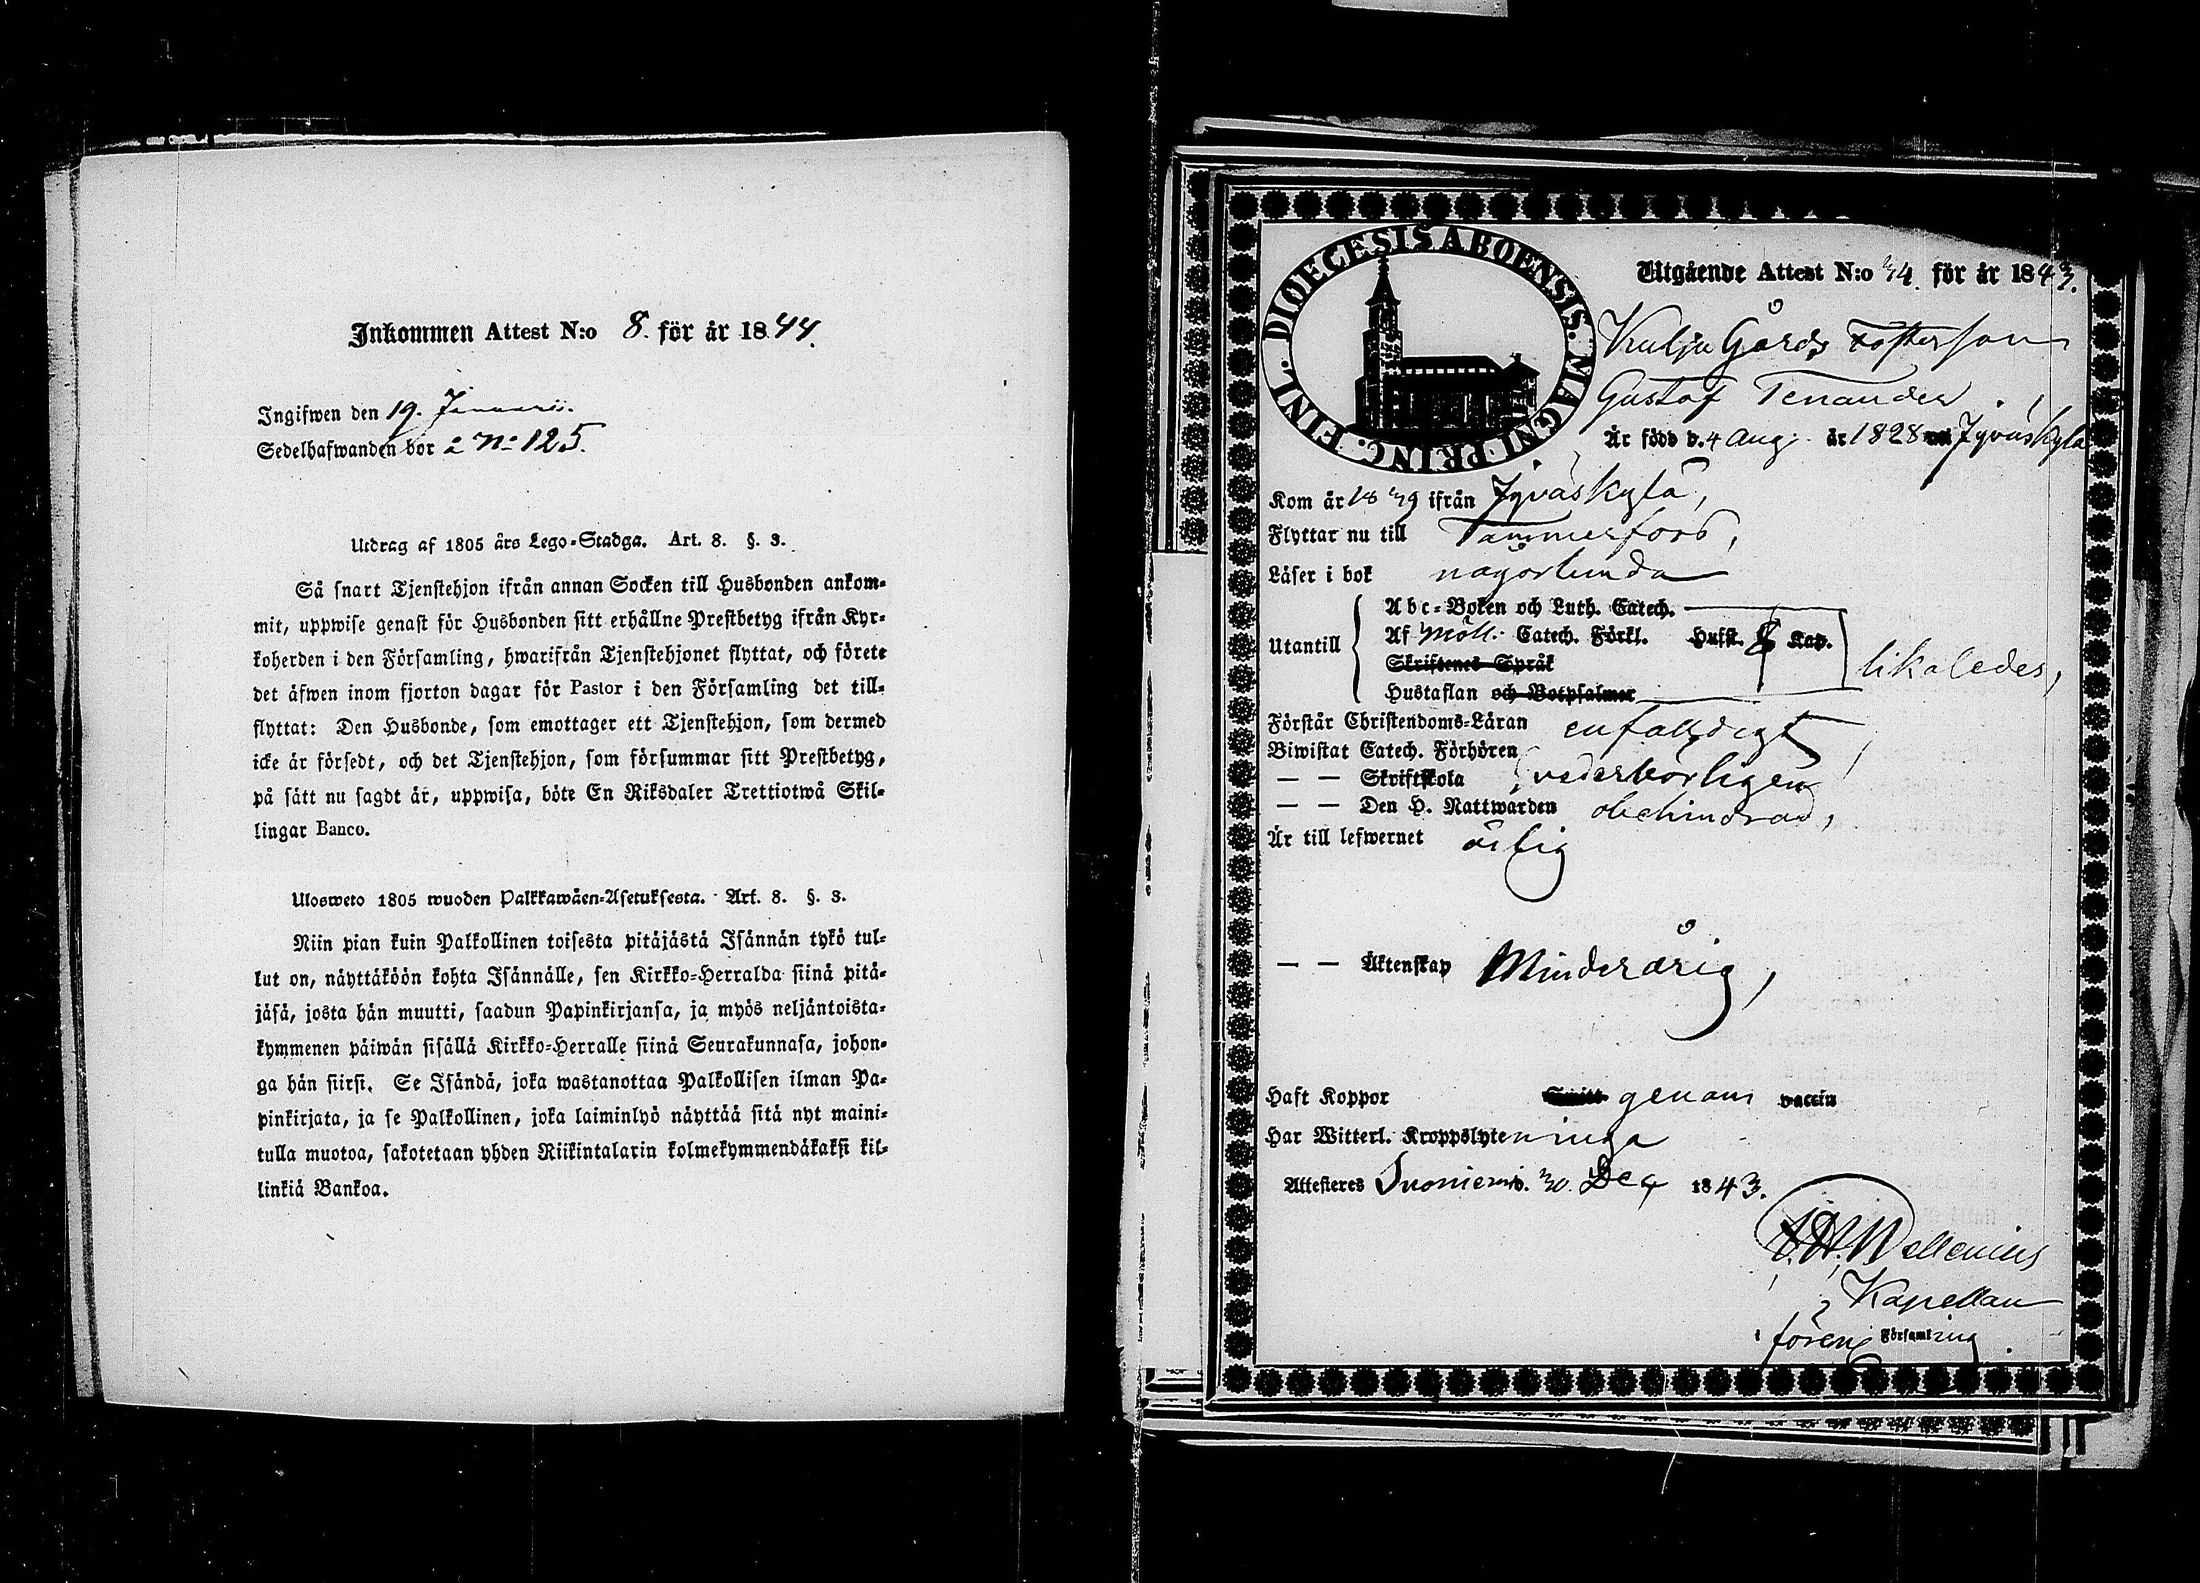 Inkommen Attest N:o 8. för år 1844.
Ingifwen den 19. Januarii.
Sedelhafwanden bor å No 125.
Utdrag af 1805 års Lego-Stadga. Art. 8. §. 3.
Så snart Tjenstehjon ifrån annan Socken till Husbonden ankom-
mit, uppwise genast för Husbonden sitt erhållne Prestbetyg ifrån Kyr-
koherden i den Församling, hwarifrån Tjenstehjonet flyttat, och förete
det äfwen inom fjorton dagar för Pastor i den Församling det till-
flyttat: Den Husbonde, som emottager ett Tjenstehjon, som dermed
icke är försedt, och det Tjenstehjon, som försummar sitt Prestbetyg,
på sätt nu sagdt är, uppwisa, böte En Riksdaler Trettiotwå Skil-
lingar Banco.
Ulosweto 1805 wuoden Palkkawäen-Asetuksesta. Art. 8. §. 3.
Niin pian kuin Palkollinen toisesta pitäjästä Isännän tykö tul-
lut on, näyttäköön kohta Isännälle, sen Kirkko-Herralda siinä pitä-
jäsä, josta hän muutti, saadun Papinkirjansa, ja myös neljäntoista-
kymmenen päiwän sisällä Kirkko-Herralle siinä Seurakunnasa, johon-
ga hän siirsi. Se Isändä, joka wastanottaa Palkollisen ilman Pa-
pinkirjata, ja se Palkollinen, joka laiminlyö näyttää sitä nyt maini-
tulla muotoa, sakotetaan yhden Riikintalarin kolmekymmendäkaksi kil-
linkiä Bankoa.
DIOECESIS ABOENSIS. MAGNI PRINC. FINL.
Utgående Attest N:o 34. för år 1843.
Kulju Gårds Fosterson
Gustaf Tenander,
Är född d. 4 Aug. år 1828 uti Jyväskylä
Kom år 1839 ifrån Jyväskylä,
Flyttar nu till Tammerfors,
Läser i bok någorlunda
Utantill
Abc-Boken och Luth. Catech.
Af Möll. Catech. Förkl. Husst. & Kap.
Skriftenes Språk
Hustaflan och Botpsalmer
likaledes,
Förstår Christendoms-Läran enfalldigt,
Biwistat Catech. Förhören
— — Skriftskola vederbörligen
— — Den H. Nattwarden obehindrad,
Är till lefwernet ärlig
— — Äktenskap Minderårig,
Haft Koppor genom vaccin
Har Witterl. Kroppslyten inga
Attesteres Suoniemi d. 30. Dec 1843.
Wallenius
Kapellan
i föreng Församling.